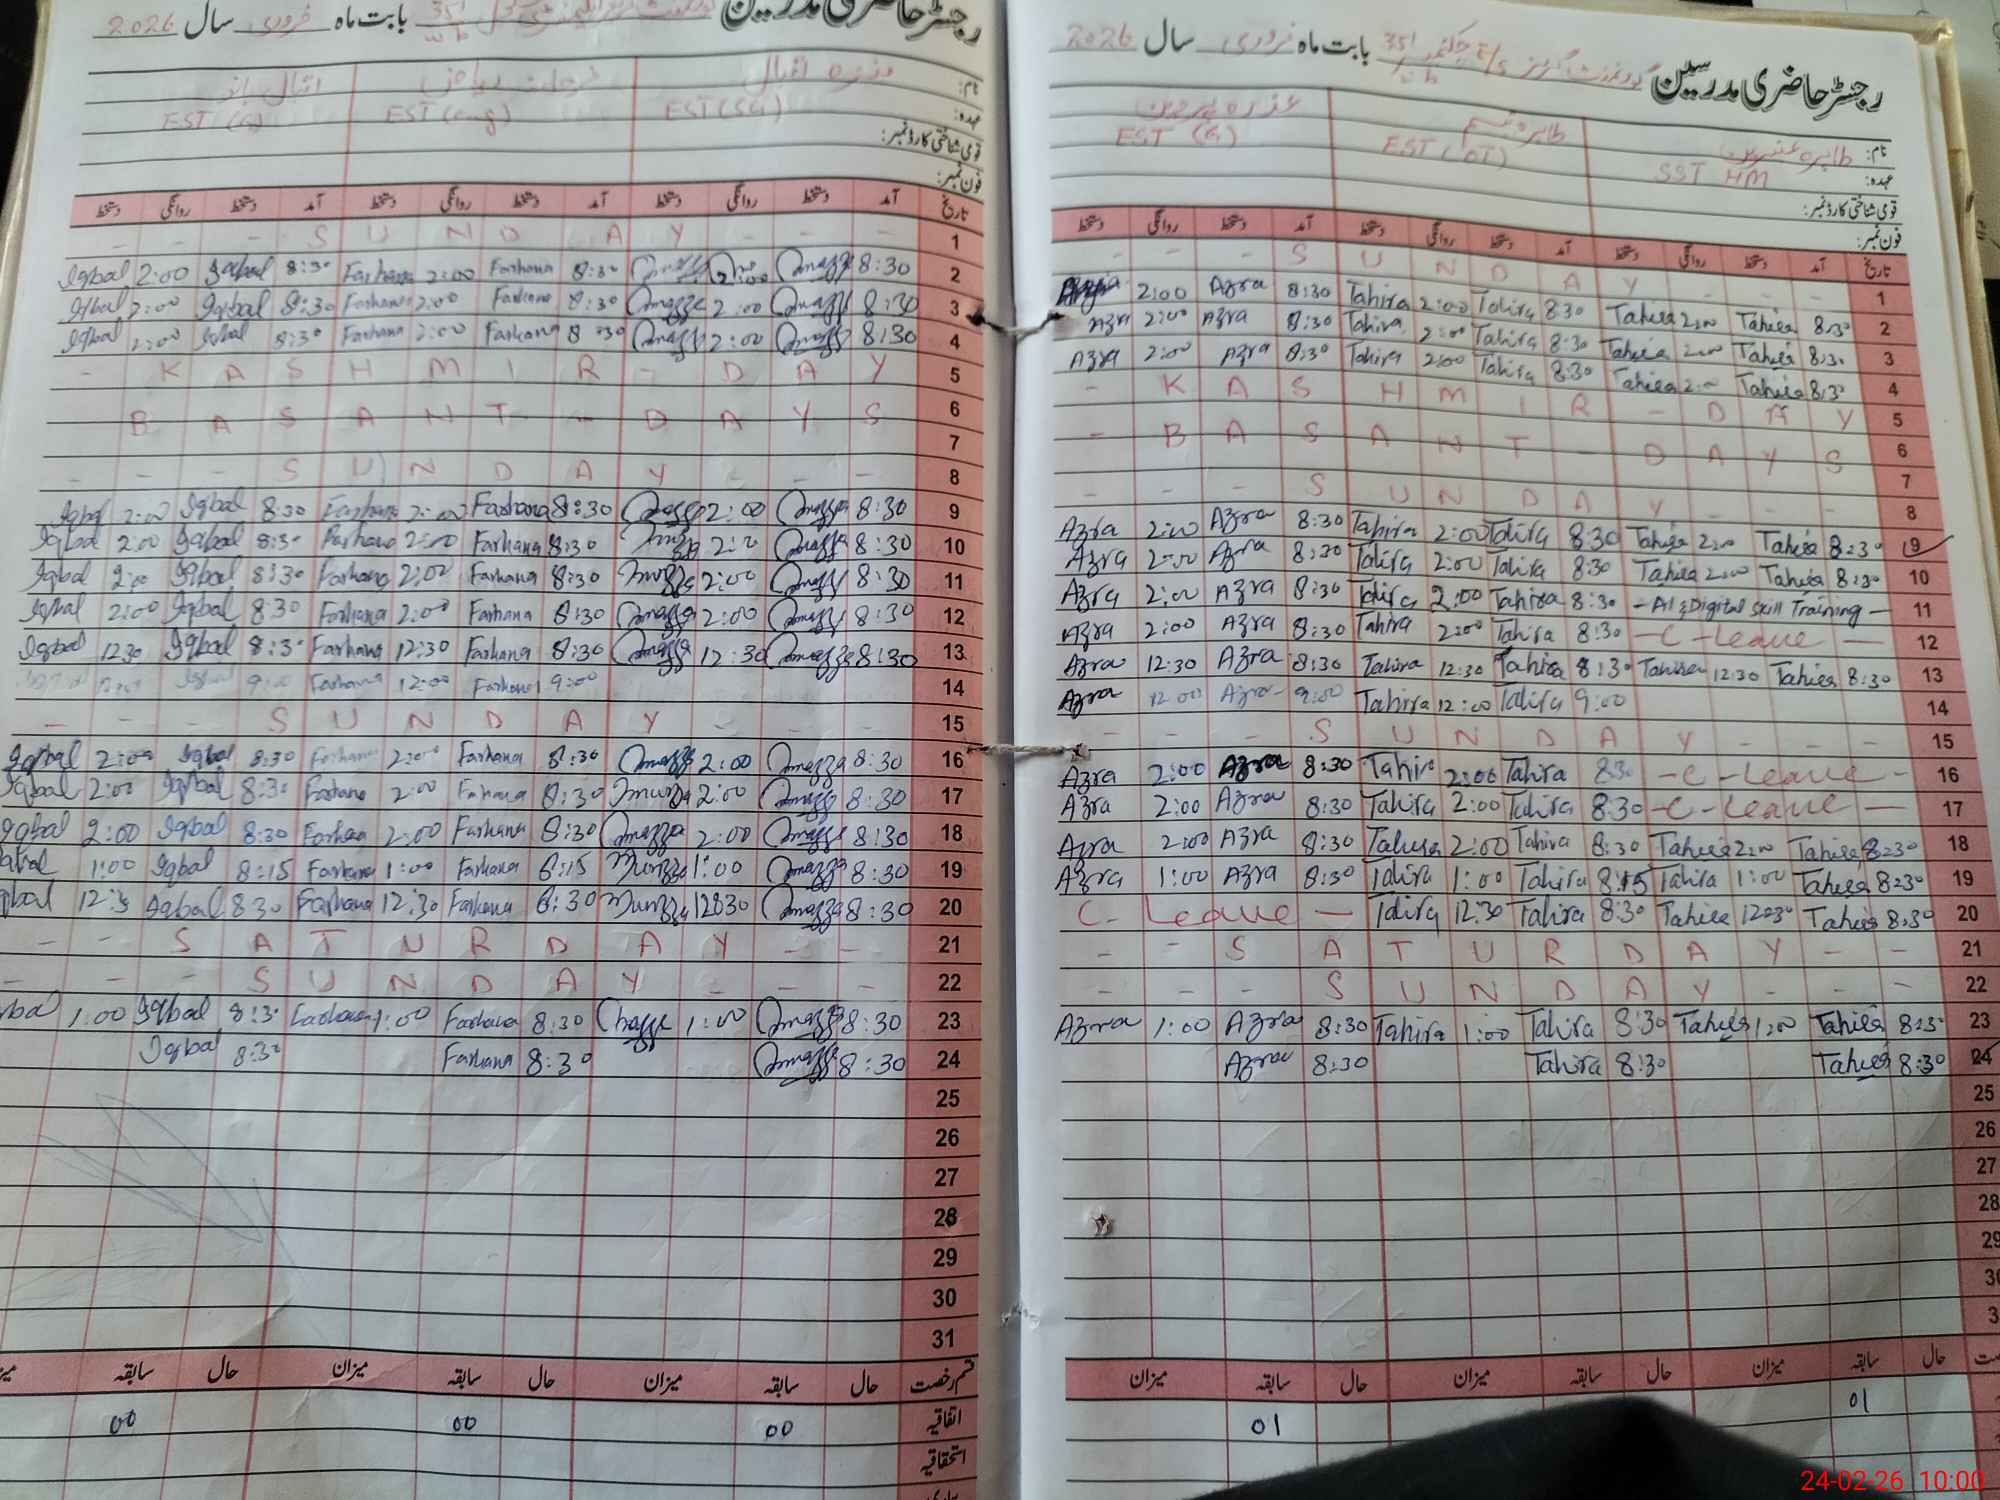 رجسٹر حاضری مدرسین بابت ماہ فروری سال 2026
نام:
عہدہ: EST (SG) EST (eng) EST (G)
قومی شناختی کارڈ نمبر:
فون نمبر:
تاریخ آمد دستخط روانگی دستخط آمد دستخط روانگی دستخط آمد دستخط روانگی دستخط
- - - S U N D A Y - - - 1
Iqbal 2:00 Iqbal 8:30 Farhana 2:00 Farhana 8:30 2:00 8:30 2
Iqbal 2:00 Iqbal 8:30 Farhana 2:00 Farhana 8:30 2:00 8:30 3
Iqbal 2:00 Iqbal 8:30 Farhana 2:00 Farhana 8:30 2:00 8:30 4
- K A S H M I R - D A Y 5
B A S A N T - D A Y S 6
7
- - - S U N D A Y - - - 8
Iqbal 2:00 Iqbal 8:30 Farhana 2:00 Farhana 8:30 2:00 8:30 9
Iqbal 2:00 Iqbal 8:30 Farhana 2:00 Farhana 8:30 2:00 8:30 10
Iqbal 2:00 Iqbal 8:30 Farhana 2:00 Farhana 8:30 2:00 8:30 11
Iqbal 2:00 Iqbal 8:30 Farhana 2:00 Farhana 8:30 2:00 8:30 12
Iqbal 12:30 Iqbal 8:30 Farhana 12:30 Farhana 8:30 12:30 8:30 13
9:00 Farhana 12:00 Farhana 9:00 14
- - - S U N D A Y - - - 15
Iqbal 2:00 Iqbal 8:30 Farhana 2:00 Farhana 8:30 2:00 8:30 16
Iqbal 2:00 Iqbal 8:30 Farhana 2:00 Farhana 8:30 2:00 8:30 17
Iqbal 2:00 Iqbal 8:30 Farhana 2:00 Farhana 8:30 2:00 8:30 18
1:00 Iqbal 8:15 Farhana 1:00 Farhana 8:15 1:00 8:30 19
Iqbal 8:30 Farhana 12:30 Farhana 8:30 8:30 20
- - S A T U R D A Y - - 21
- - - S U N D A Y - - - 22
1:00 Iqbal 8:30 Farhana 1:00 Farhana 8:30 1:00 8:30 23
Iqbal 8:30 Farhana 8:30 8:30 24
25
26
27
28
29
30
31
قسم رخصت حال سابقہ میزان حال سابقہ میزان حال سابقہ
اتفاقیہ 00 00 00
استحقاقیہ
رجسٹر حاضری مدرسین گورنمنٹ گرلز E/S چک نمبر 351 بابت ماہ فروری سال 2026
نام: طاہرہ عنبرین طاہرہ تبسم عذرہ پروین
عہدہ: SST HM EST (OT) EST (G)
قومی شناختی کارڈ نمبر:
فون نمبر:
تاریخ آمد دستخط روانگی دستخط آمد دستخط روانگی دستخط آمد دستخط روانگی دستخط
- - S U N D A Y - - - 1
Azra 2:00 Azra 8:30 Tahira 2:00 Tahira 8:30 Tahira 2:00 Tahira 8:30 2
Azra 2:00 Azra 8:30 Tahira 2:00 Tahira 8:30 Tahira 2:00 Tahira 8:30 3
Azra 2:00 Azra 8:30 Tahira 2:00 Tahira 8:30 Tahira 2:00 Tahira 8:30 4
- K A S H M I R - D A Y 5
- B A S A N T - D A Y S 6
7
- - - S U N D A Y - - - 8
Azra 2:00 Azra 8:30 Tahira 2:00 Tahira 8:30 Tahira 2:00 Tahira 8:30 9
Azra 2:00 Azra 8:30 Tahira 2:00 Tahira 8:30 Tahira 2:00 Tahira 8:30 10
Azra 2:00 Azra 8:30 Tahira 2:00 Tahira 8:30 - AI & Digital Skill Training - 11
Azra 2:00 Azra 8:30 Tahira 2:00 Tahira 8:30 - C - Leave - 12
Azra 12:30 Azra 8:30 Tahira 12:30 Tahira 8:30 Tahira 12:30 Tahira 8:30 13
Azra 12:00 Azra 9:00 Tahira 12:00 Tahira 9:00 14
- - - S U N D A Y - - - 15
Azra 2:00 Azra 8:30 Tahira 2:00 Tahira 8:30 - C - Leave - 16
Azra 2:00 Azra 8:30 Tahira 2:00 Tahira 8:30 - C - Leave - 17
Azra 2:00 Azra 8:30 Tahira 2:00 Tahira 8:30 Tahira 2:00 Tahira 8:30 18
Azra 1:00 Azra 8:30 Tahira 1:00 Tahira 8:15 Tahira 1:00 Tahira 8:30 19
C - Leave - Tahira 12:30 Tahira 8:30 Tahira 12:30 Tahira 8:30 20
- - S A T U R D A Y - - 21
- - - S U N D A Y - - - 22
Azra 1:00 Azra 8:30 Tahira 1:00 Tahira 8:30 Tahira 1:00 Tahira 8:30 23
Azra 8:30 Tahira 8:30 Tahira 8:30 24
25
26
27
28
29
30
حال سابقہ میزان حال سابقہ میزان حال سابقہ میزان
01 01
24-02-26 10:00